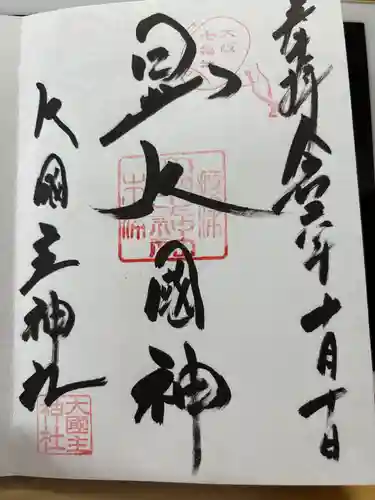 奉拝 令和二年 十月十日
日出大國神
大國主神社
大國主
神社